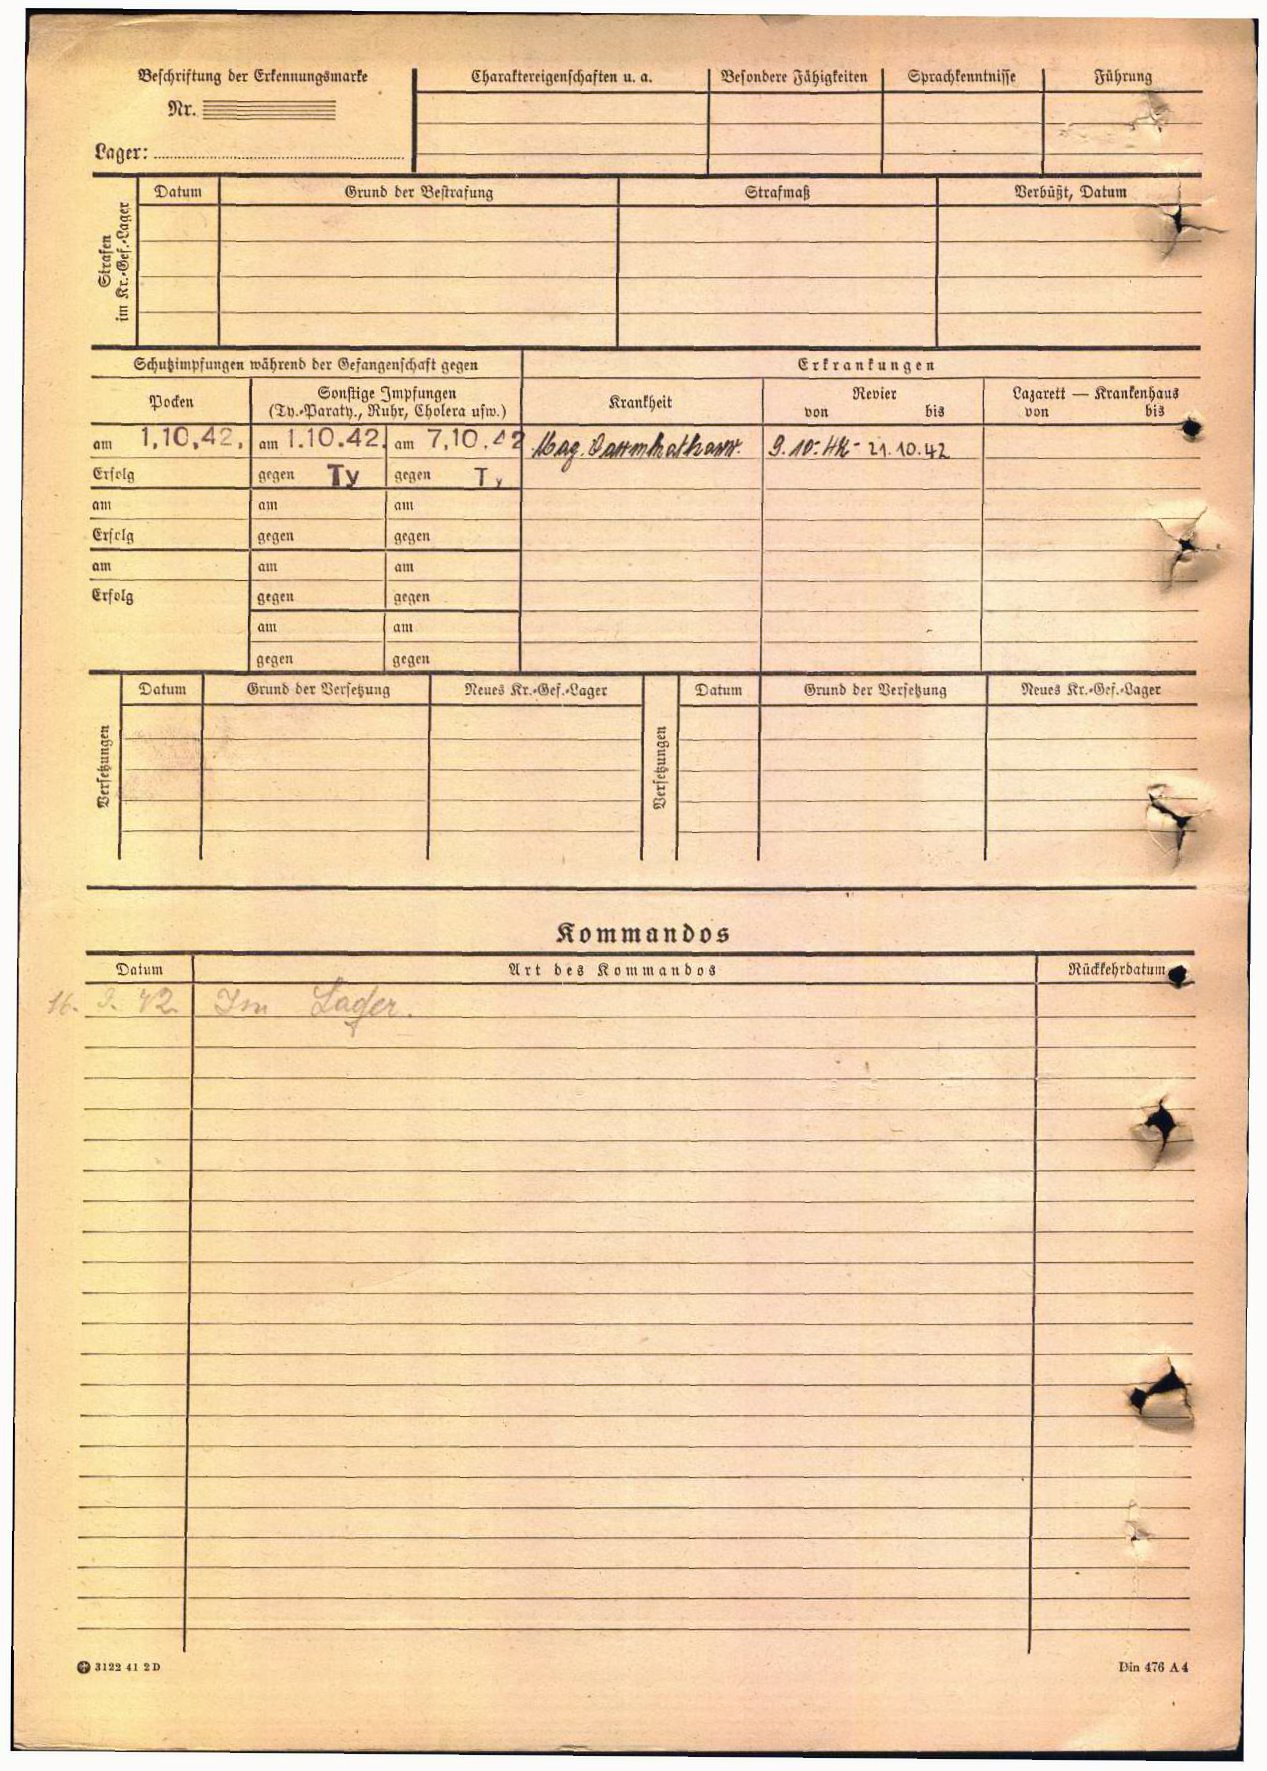 Beschriftung der Erkennungsmarke
Nr.
Lager:
Charaktereigenschaften u. a. Besondere Fähigkeiten Sprachkenntnisse Führung
Strafen
im Kr.-Gef.-Lager
Datum Grund der Bestrafung Strafmaß Verbüßt, Datum
Schutzimpfungen während der Gefangenschaft gegen Erkrankungen
Pocken
Sonstige Impfungen
(Ty.-Paraty., Ruhr, Cholera usw.)
Krankheit
Revier
von bis
Lazarett — Krankenhaus
von bis
am 1.10.42. am 1.10.42. am 7.10.42 Mag. Darmkatharr. 9.10.42 - 21.10.42
Erfolg gegen Ty gegen Ty
am am am
Erfolg gegen gegen
am am am
Erfolg gegen gegen
am am
gegen gegen
Versetzungen
Datum Grund der Versetzung Neues Kr.-Gef.-Lager
Versetzungen
Datum Grund der Versetzung Neues Kr.-Gef.-Lager
Kommandos
Datum Art des Kommandos Rückkehrdatum
16. 9. 42 Im Lager.
3122 41 2D Din 476 A4